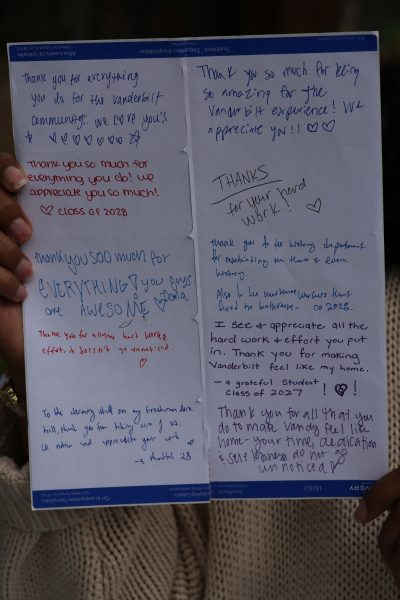 Thank you for everything
you do for the Vanderbilt
community!! We love you!!
Thank you so much for
everything you do! We
appreciate you so much!
Class of 2028
Thank you SOO much for
EVERYTHING you guys
are AWESOME
Thank you for all your hard work &
effort, it doesn't go unnoticed.
To the cleaning staff on my freshman dorm
hall, thank you for taking care of us.
We notice and appreciate your work
-a thankful 28
Thank you so much for being
so amazing for the
Vanderbilt experience! We
appreciate you!!
THANKS
for your hard
work!
Thank you to the history department
for
history.
Also to the workers that
fixed the bathroom - co 2028.
I see & appreciate all the
hard work & effort you put
in. Thank you for making
Vanderbilt feel like my home.
- a grateful student
class of 2027
Thank you for all that you
do to make Vandy feel like
home - your time, dedication
& selflessness do not go
unnoticed
Go to avery.com/templates
Shipping Labels
TrueBlock
18163
AVERY